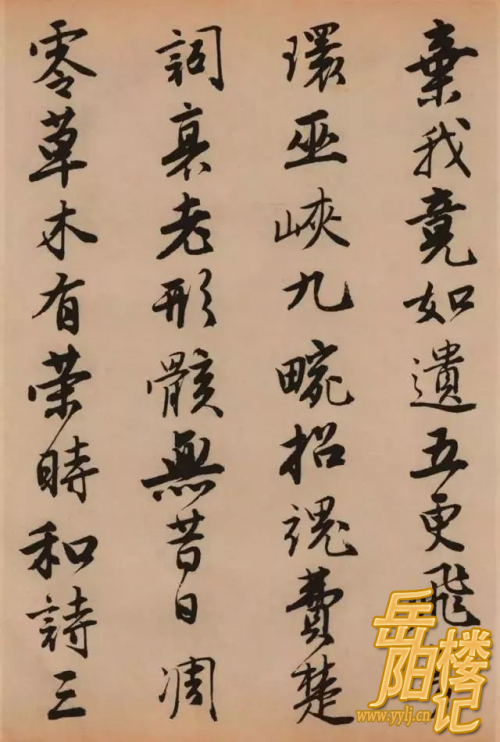 棄我竟如遺五更飛
環巫峽九畹招魂費楚
詞哀老形骸無昔日凋
零草木有榮時和詩三
岳阳楼记
www.yylj.cn